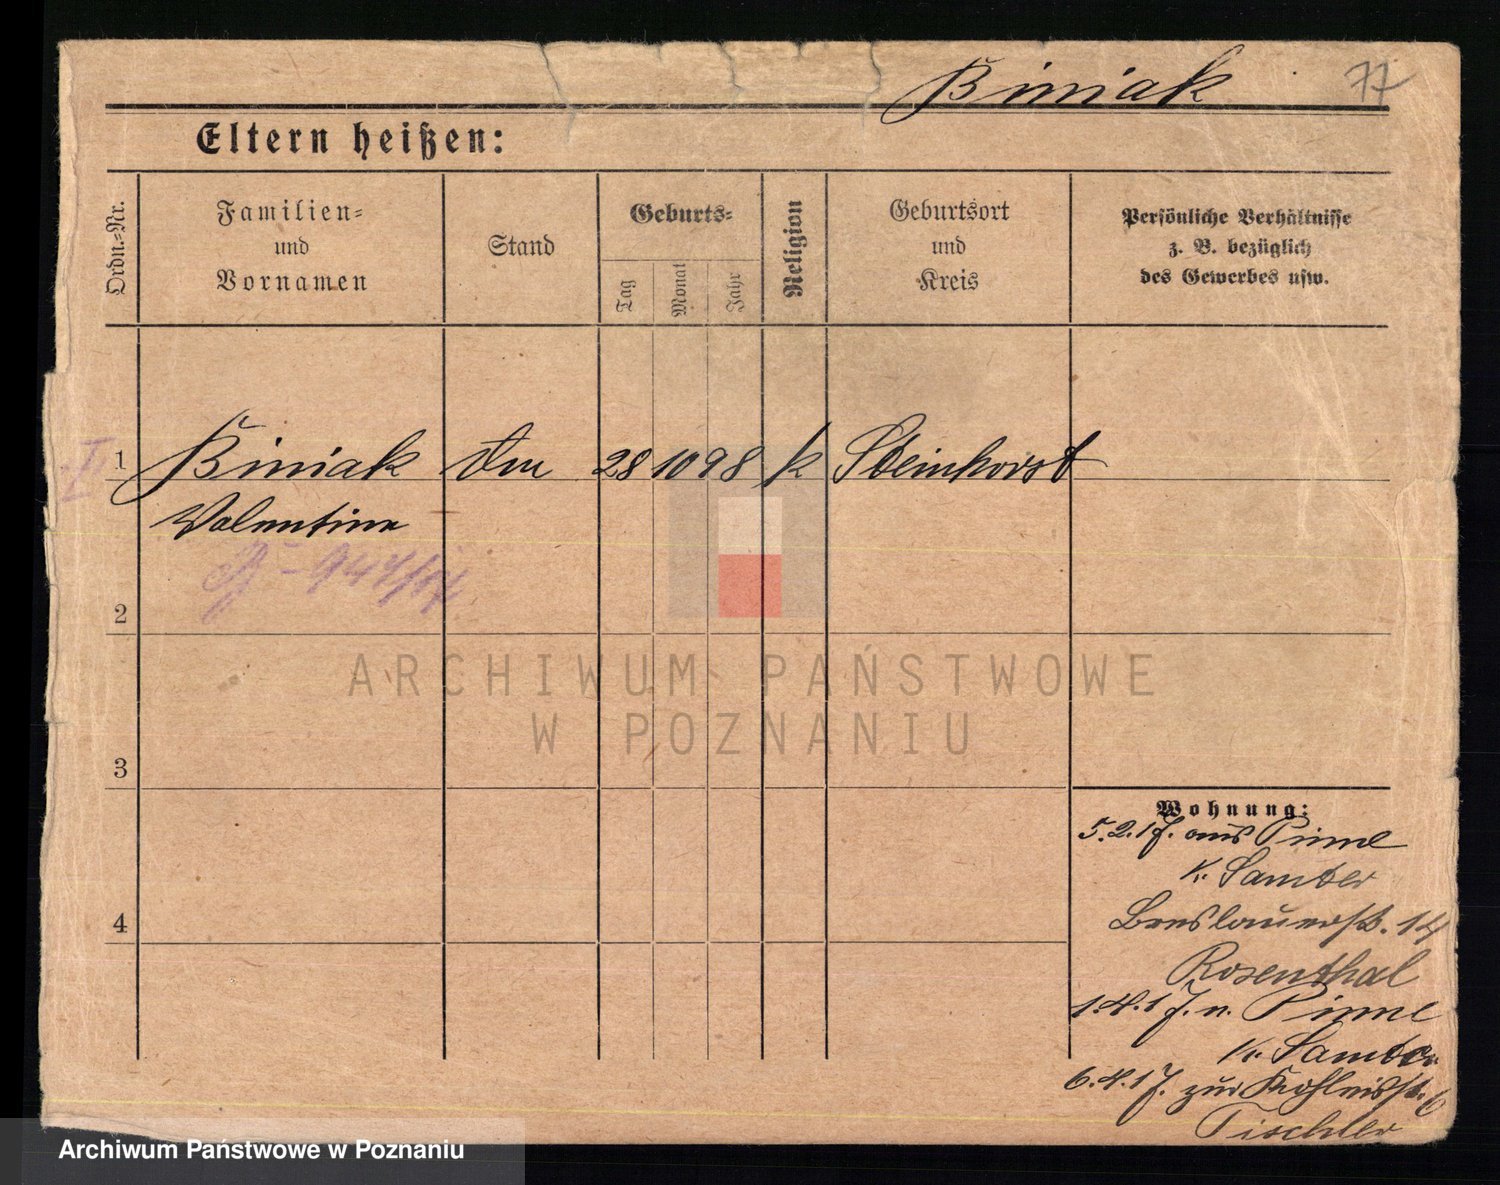 Biniak 77
Eltern heißen:
Ordn.=Nr.
Familien=
und
Vornamen
Stand
Geburts=
Tag
Monat
Jahr
Religion
Geburtsort
und
Kreis
Persönliche Verhältnisse
z. B. bezüglich
des Gewerbes usw.
I
1 Biniak 28 10 98 k Steinhorst
Valentine
947/17
2
3
4
Wohnung:
5.2.17. aus Pinne
K. Samter
Breslauerstr. 14
Rosenthal
1.4.17. n. Pinne
K. Samter
6.4.17. zur 6
Tischler
ARCHIWUM PAŃSTWOWE
W POZNANIU
Archiwum Państwowe w Poznaniu